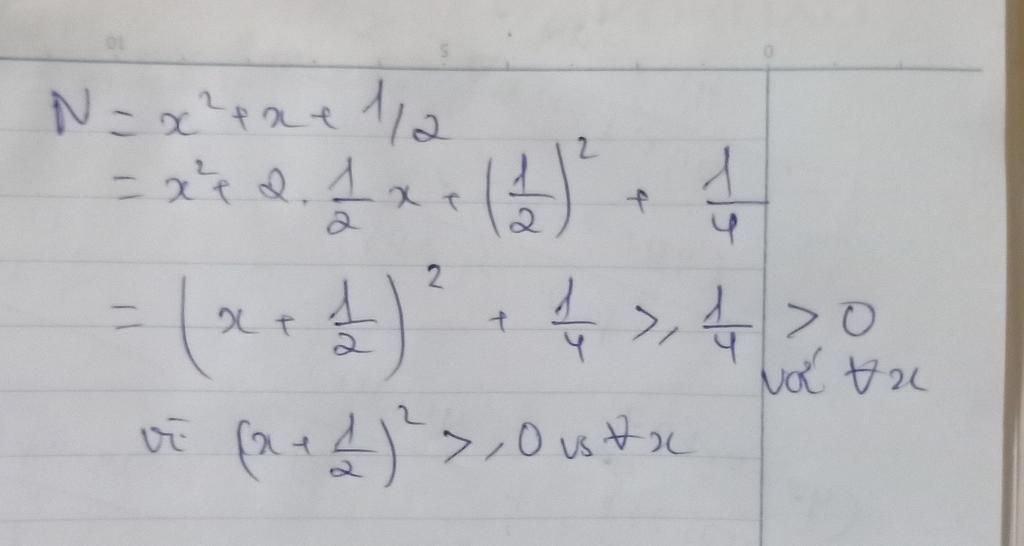 10 5 0
N = x² + x + 1/2
= x² + 2. 1/2 x + (1/2)² + 1/4
= (x + 1/2)² + 1/4 ≥ 1/4 > 0
với ∀x
vì (x + 1/2)² ≥ 0 vs ∀x